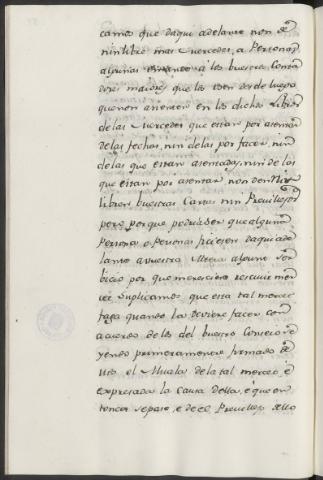 camos que daqui adelante non se
nin libre mas mercedes, a Personas
algunas mandando a los buestros Conta
dores maiores, que les den desde luego
que non asienten en los dichos libros
de las mercedes que estan por asentar
delas fechas, nin delas por facer, nin
de las que estan asentadas, nin de las
que estan por asentar non den nin
libren buestras Cartas nin Previllejos
pero porque podria ser que alguna
Persona o Personas ficiesen daqui ade
lante a vuestra Alteza algun ser
bicio por que meresciera rescivir mer
ced, Suplicamos que esta tal merced
faga quando la deviere facer con
acuerdo de los del buestro Consejo se
yendo primeramente firmado de
llos el Alvala de la tal merced, e
expresada la Causa della, e que en
tonces se pase, e de el Previllejo dello